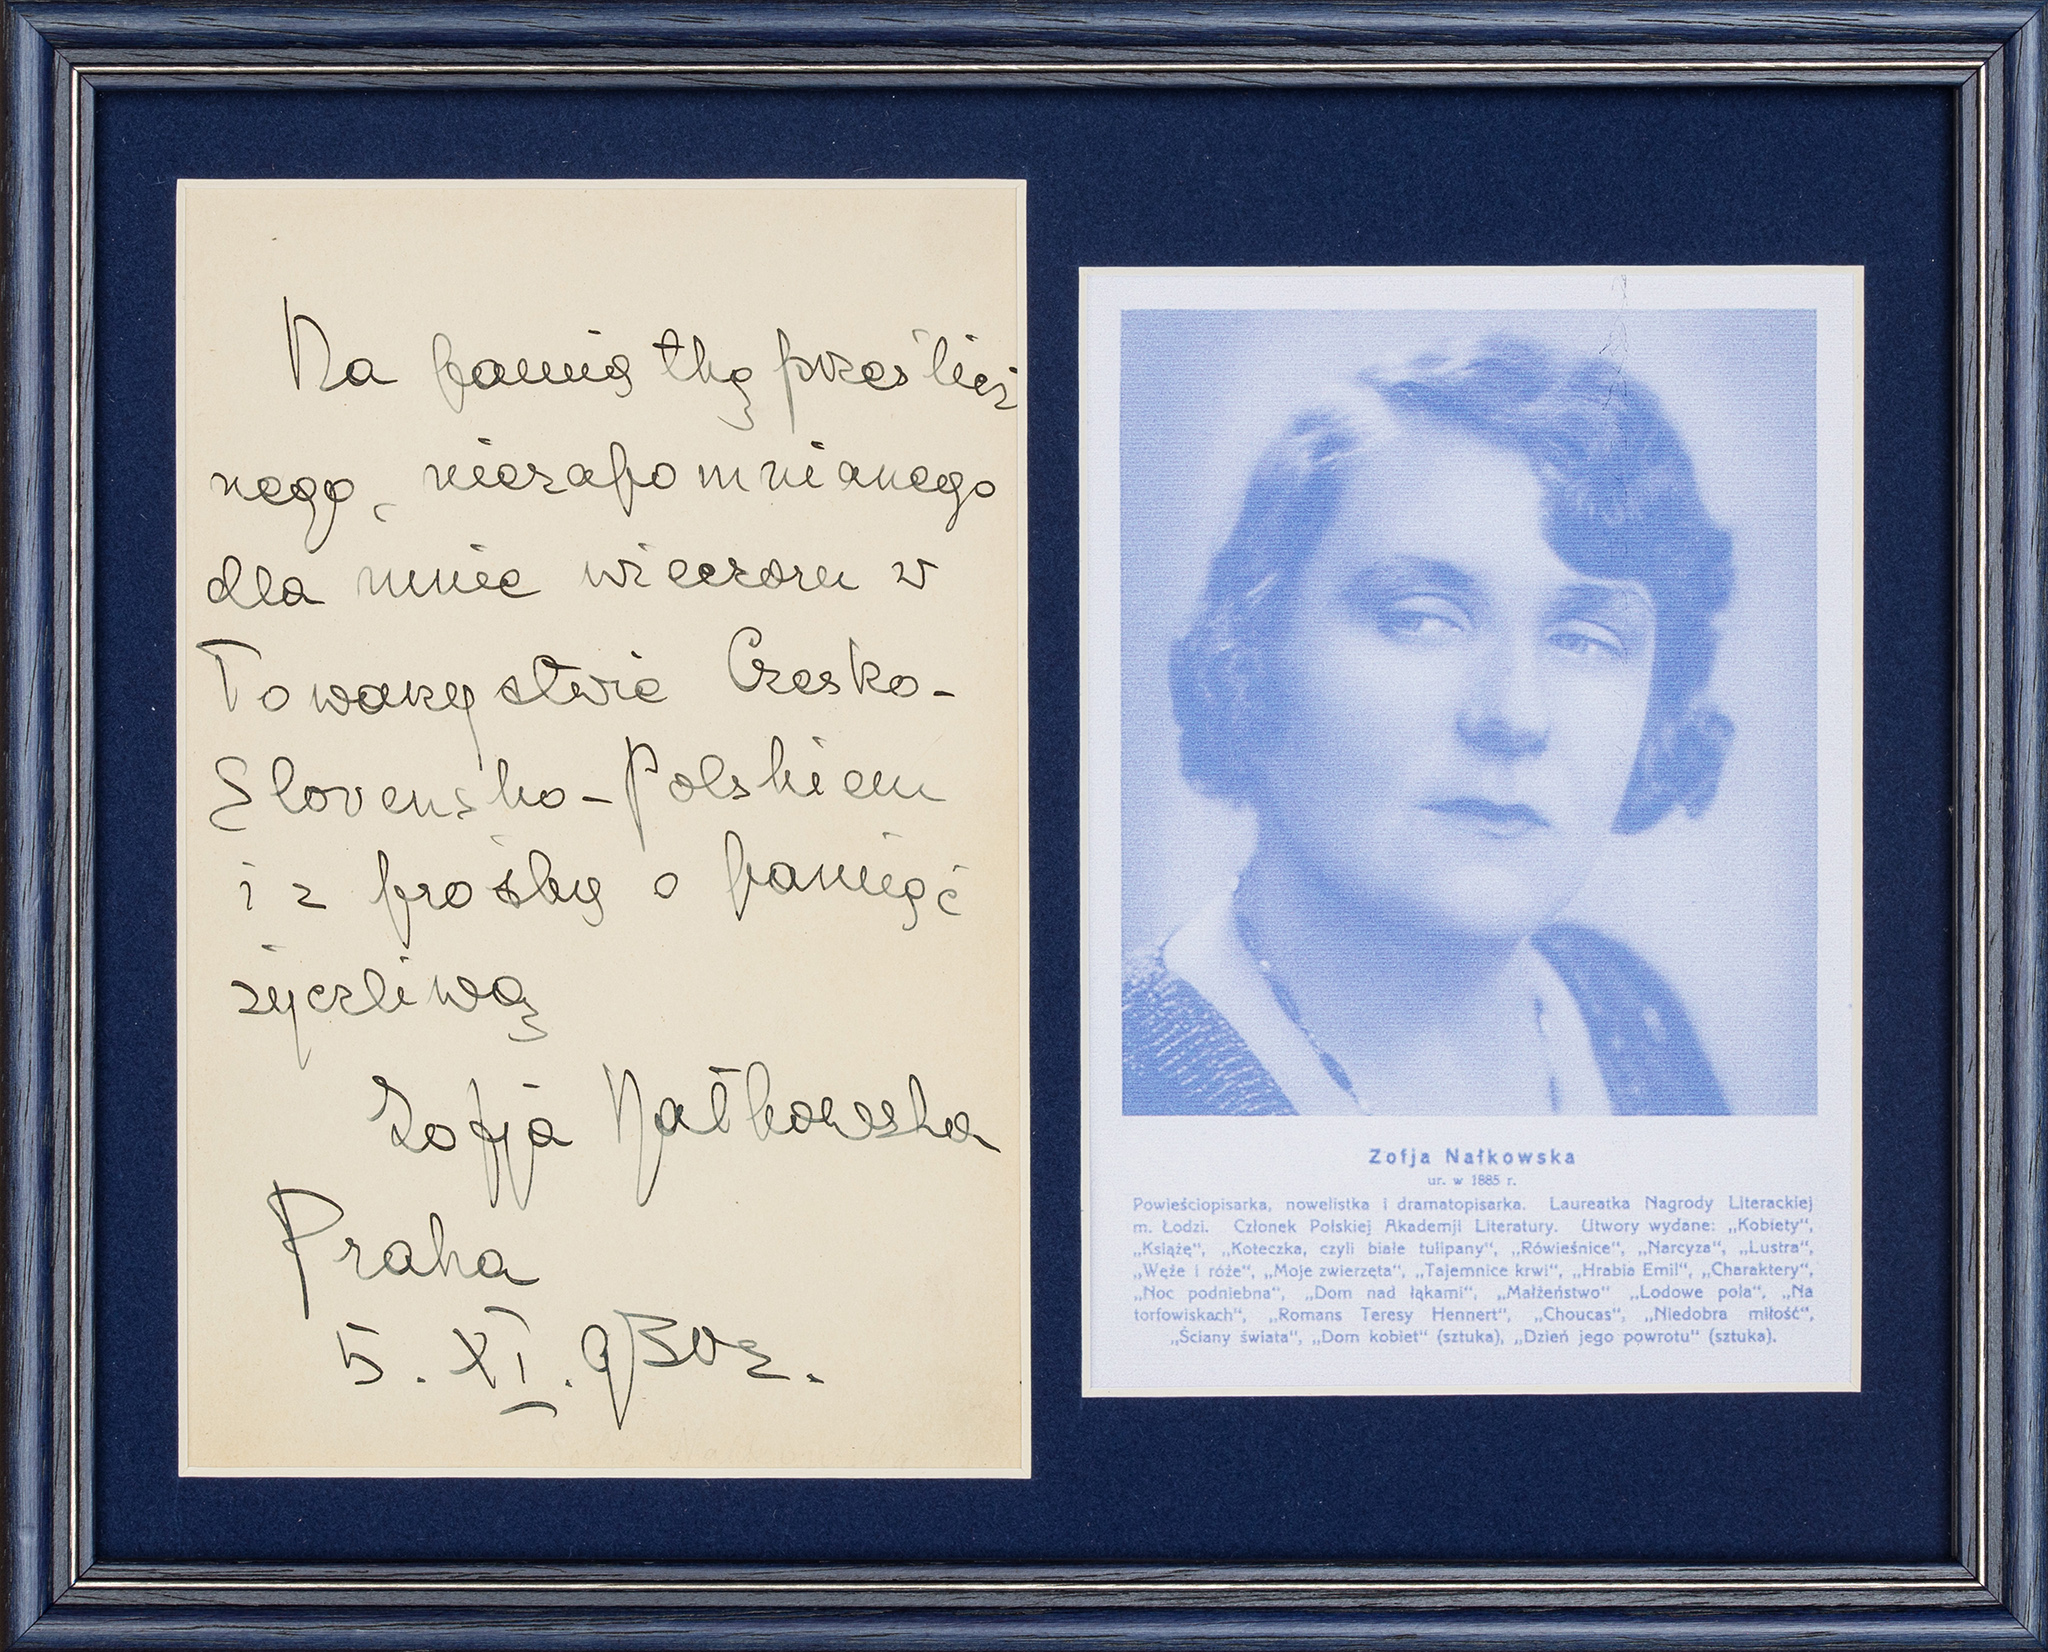 Na pamiątkę prześlicz
nego, niezapomnianego
dla mnie wieczoru w
Towarzystwie Czesko-
Slovensko-Polskiem
i z prośbą o pamięć
życzliwą
Zofja Nałkowska
Praha
5. XI. 930 r.
Zofja Nałkowska
ur. w 1885 r.
Powieściopisarka, nowelistka i dramatopisarka. Laureatka Nagrody Literackiej
m. Łodzi. Członek Polskiej Akademji Literatury. Utwory wydane: „Kobiety“,
„Książę“, „Koteczka, czyli białe tulipany“, „Rówieśnice“, „Narcyza“, „Lustra“,
„Węże i róże“, „Moje zwierzęta“, „Tajemnice krwi“, „Hrabia Emil“, „Charaktery“,
„Noc podniebna“, „Dom nad łąkami“, „Małżeństwo“ „Lodowe pola“, „Na
torfowiskach“, „Romans Teresy Hennert“, „Choucas“, „Niedobra miłość“,
„Ściany świata“, „Dom kobiet“ (sztuka), „Dzień jego powrotu“ (sztuka).